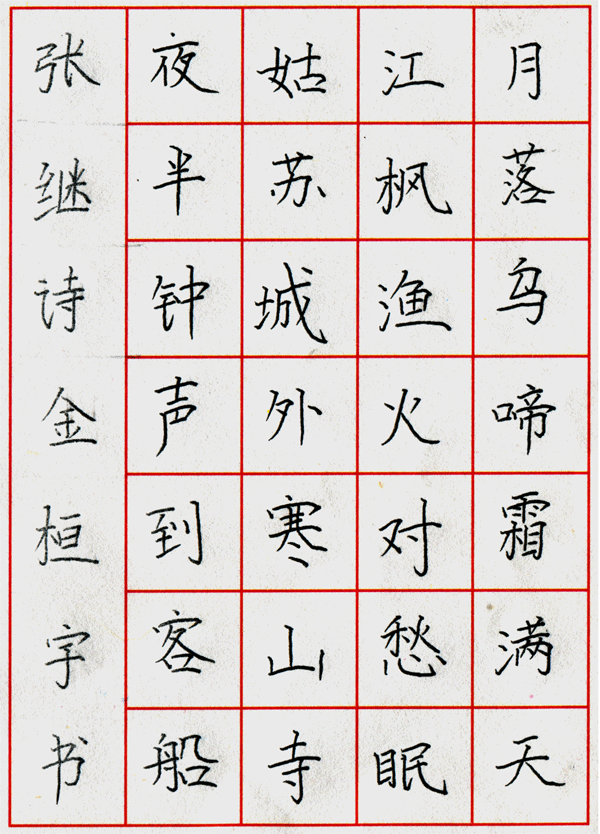 月落乌啼霜满天
江枫渔火对愁眠
姑苏城外寒山寺
夜半钟声到客船
张继诗金桓字书